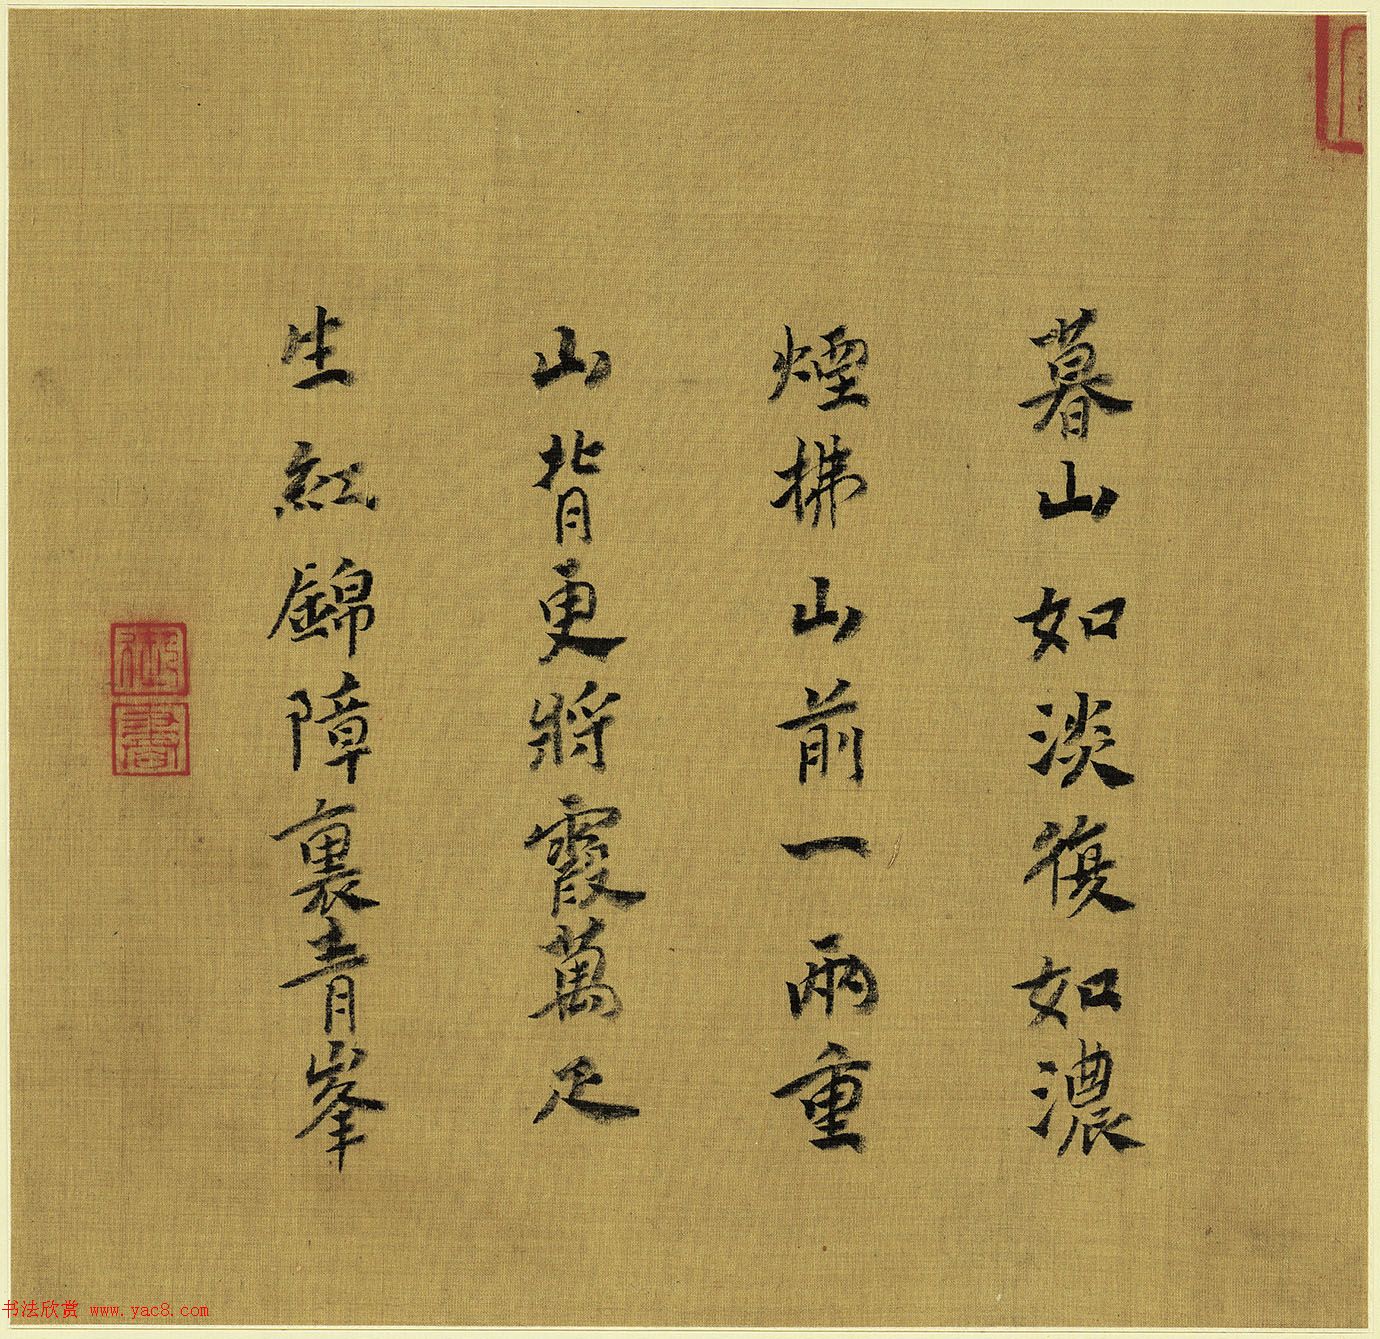 暮山如淡復如濃
煙拂山前一兩重
山背更將霞萬疋
生紅錦障裏青峯
御書
书法欣赏 www.yac8.com